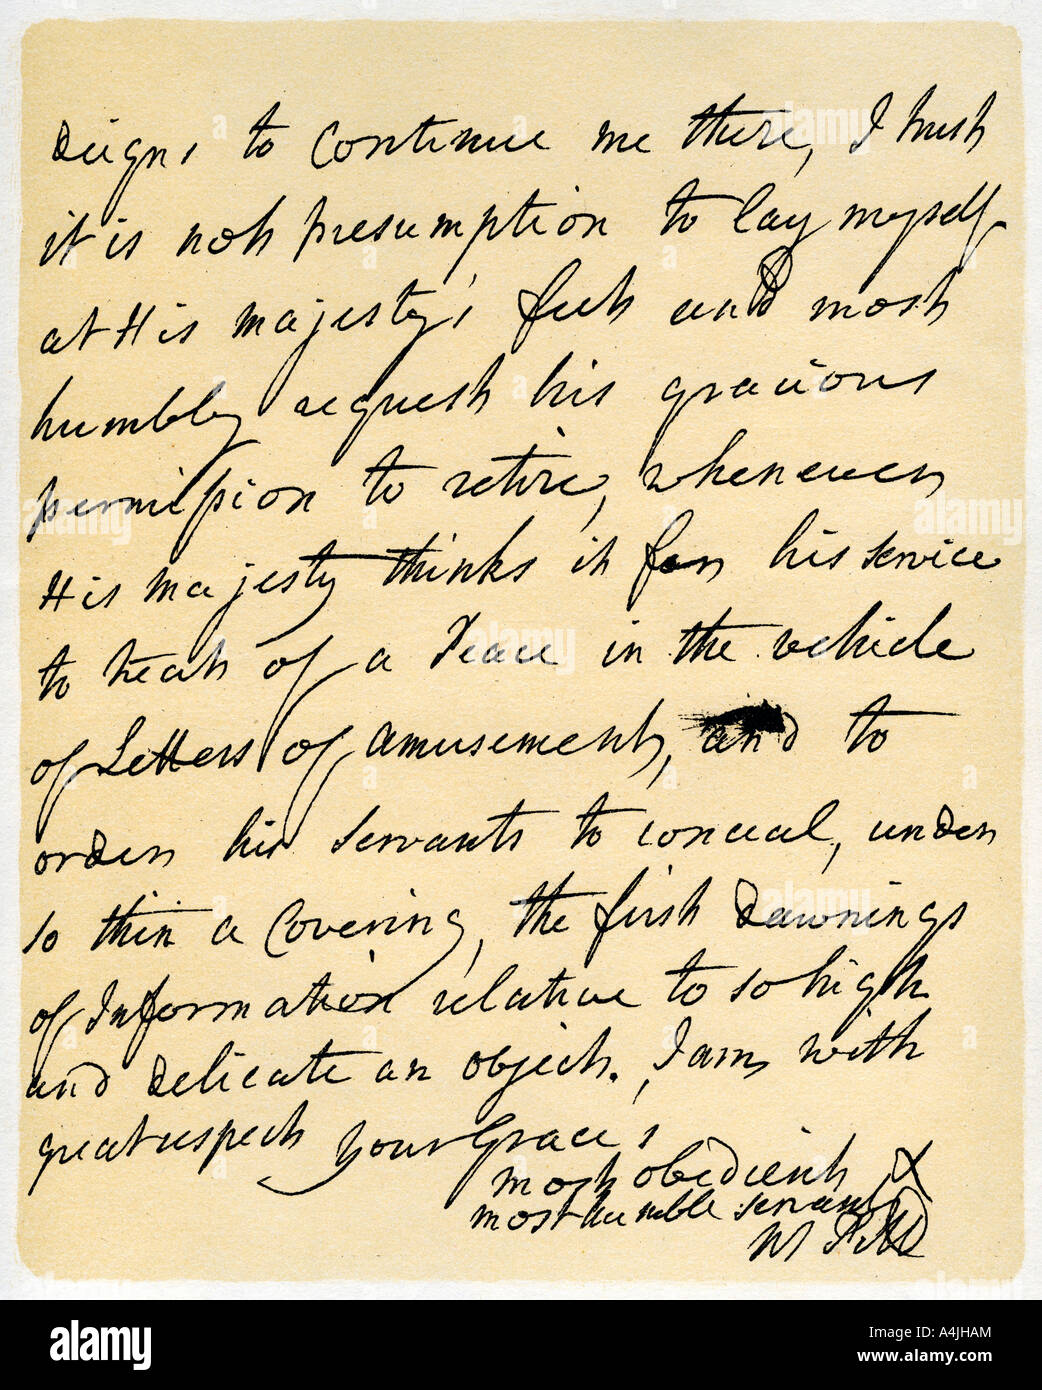 Deigns to Continue me there, I trust
it is not presumption to lay myself
at His majesty's feet and most
humbly request his gracious
permission to retire, whenever
His majesty thinks it for his service
to treat of a Peace in the vehicle
of Letters of amusement, and to
order his servants to conceal, under
so thin a Covering, the first Dawnings
of Information relative to so high
and Delicate an object. I am, with
great respect your Grace's
most obedient &
most humble servant
W Pitt
alamy
Image ID: A4JHAM
www.alamy.com